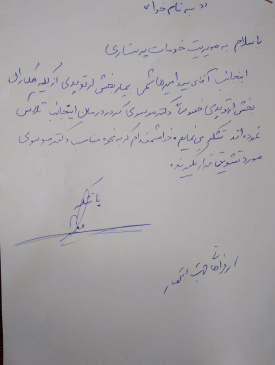 به نام خدا
با سلام به مدیریت خدمات پرستاری
اینجانب آقای سید امیر هاشمی بیمار بخش ارتوپدی از کلیه همکاران
بخش ارتوپدی خصوصاً دکتر موسوی که در درمان اینجانب تلاش
نموده‌اند تشکر می نمایم و خواهشمندم که به نحوه مناسب دکتر موسوی
مورد تشویق قرار بگیرند.
با تشکر